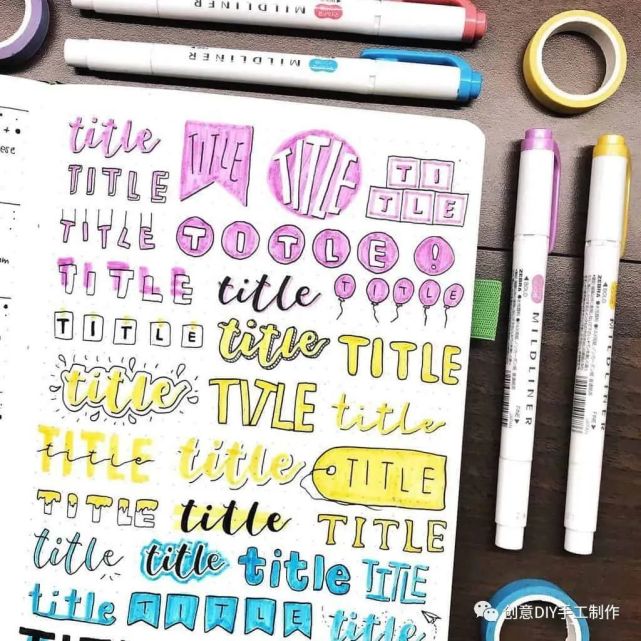 MILDLINER
MILDLINER
title
TITLE
TITLE
TI
TLE
TITLE
TITLE
TITLE!
TITLE
title
TITLE
TITLE
title
TITLE
title
TITLE
title
TITLE
title
TITLE
TITLE
title
TITLE
title
title
title
TITLE
title
TITLE
title
BOLD
ZEBRA
MILDLINER
FINE
BOLD
ZEBRA
MILDLINER
FINE
创意DIY手工制作